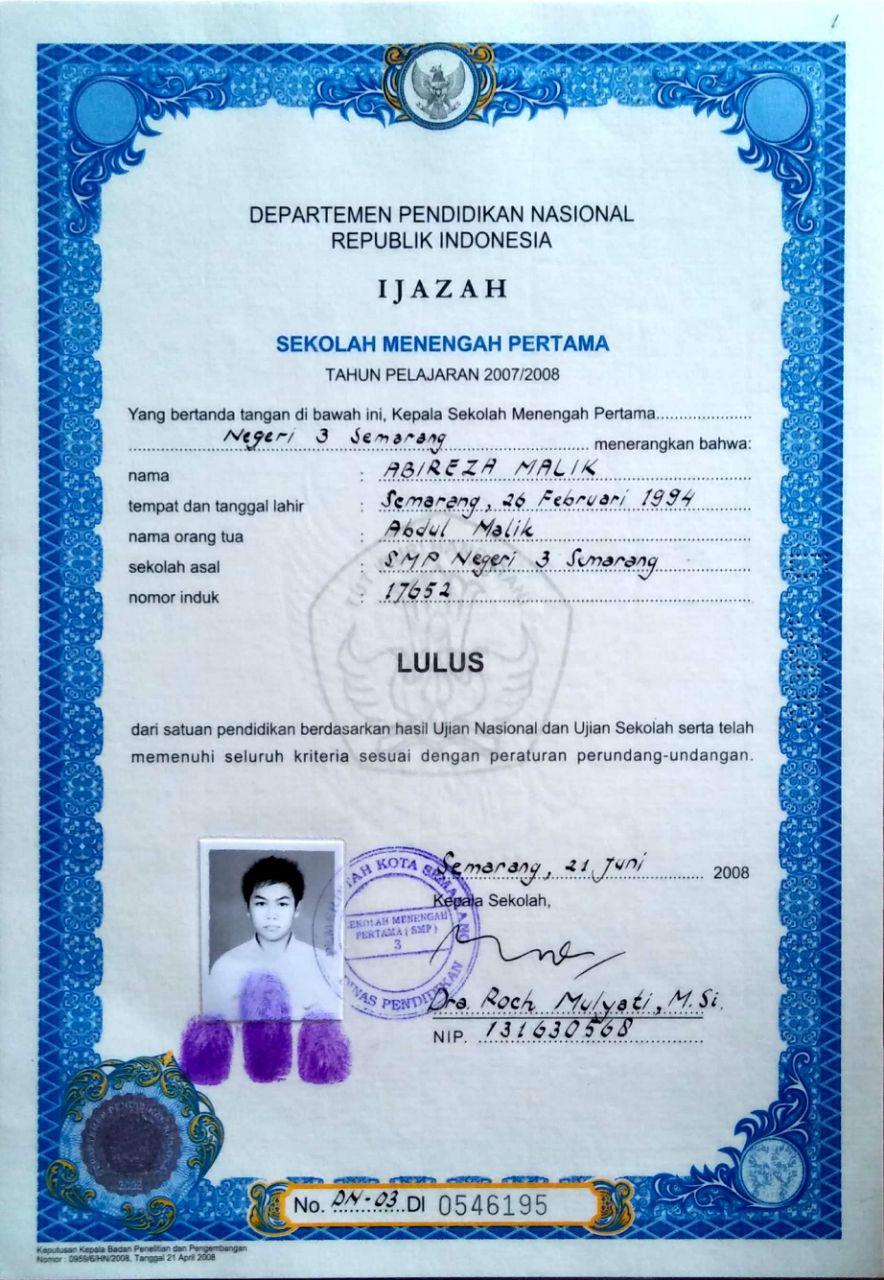 DEPARTEMEN PENDIDIKAN NASIONAL
REPUBLIK INDONESIA
IJAZAH
SEKOLAH MENENGAH PERTAMA
TAHUN PELAJARAN 2007/2008
Yang bertanda tangan di bawah ini, Kepala Sekolah Menengah Pertama....................
Negeri 3 Semarang menerangkan bahwa:
nama : ABIREZA MALIK
tempat dan tanggal lahir : Semarang, 26 Februari 1994
nama orang tua : Abdul Malik
sekolah asal : SMP Negeri 3 Semarang
nomor induk : 17652
LULUS
dari satuan pendidikan berdasarkan hasil Ujian Nasional dan Ujian Sekolah serta telah
memenuhi seluruh kriteria sesuai dengan peraturan perundang-undangan.
Semarang, 21 Juni 2008
Kepala Sekolah,
KOTA SEMARANG
SEKOLAH MENENGAH
PERTAMA (SMP)
3
DINAS PENDIDIKAN
Dra. Roch Mulyati, M.Si.
NIP. 131630568
No. DN-03 DI 0546195
Keputusan Kepala Badan Penelitian dan Pengembangan
Nomor : 0959/6/HN/2008, Tanggal 21 April 2008